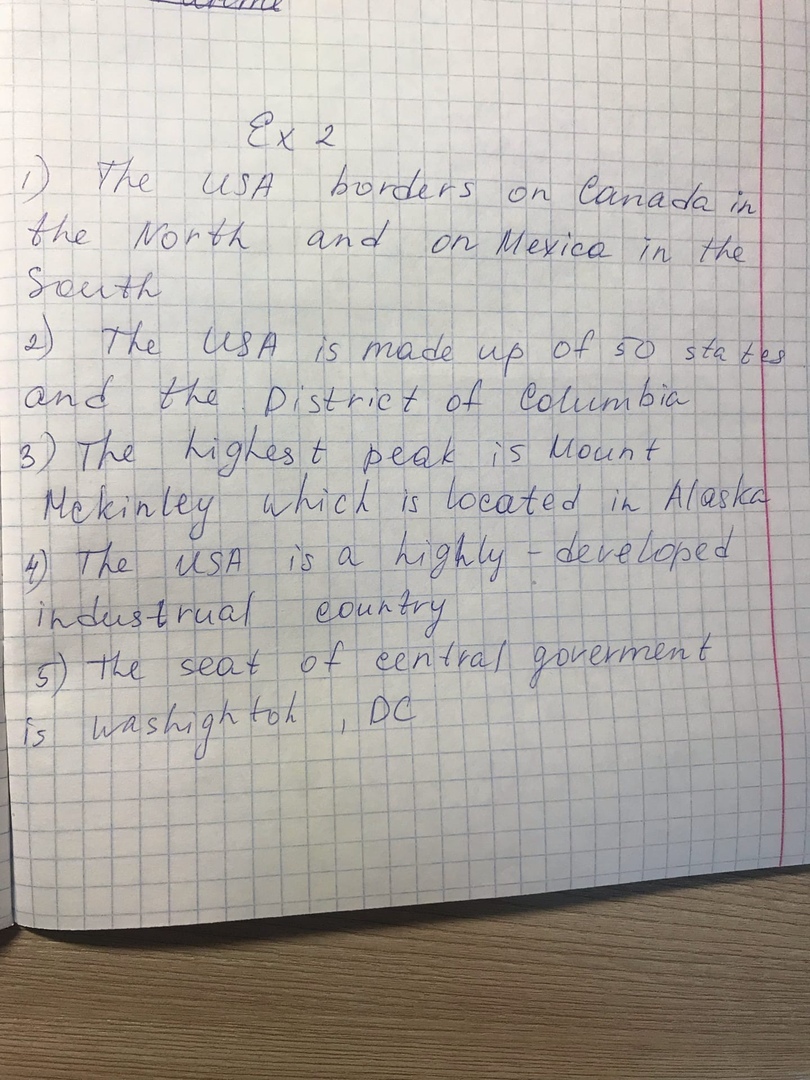 Ex 2
1) The USA borders on Canada in
the North and on Mexico in the
South
2) The USA is made up of 50 states
and the District of Columbia
3) The highest peak is Mount
Mckinley which is located in Alaska
4) The USA is a highly - developed
industrual country
5) the seat of central goverment
is washightoh , DC